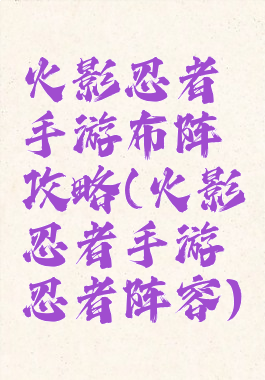 火影忍者
手游布阵
攻略(火影
忍者手游
忍者阵容)